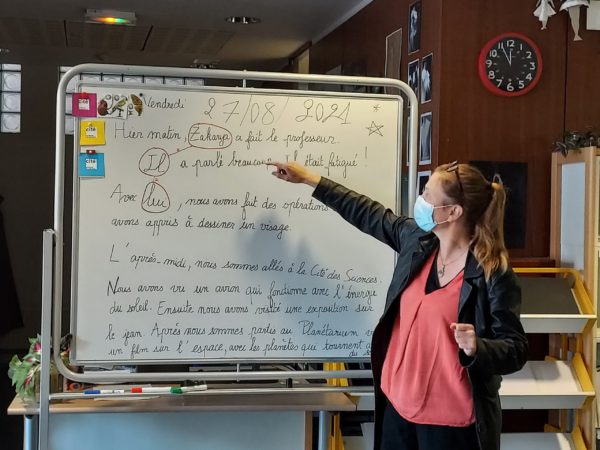 Vendredi 27/08/2021
Hier matin, Zakarya a fait le professeur.
Il a parlé beaucoup. Il était fatigué !
Avec lui, nous avons fait des opérations
avons appris à dessiner un visage.
L'après-midi, nous sommes allés à la Cité des Sciences.
Nous avons vu un avion qui fonctionne avec l'énergie
du soleil. Ensuite nous avons visité une exposition sur
le jean. Après nous sommes partis au Planétarium
un film sur l'espace, avec les planètes qui tournent
cité
cité
cité